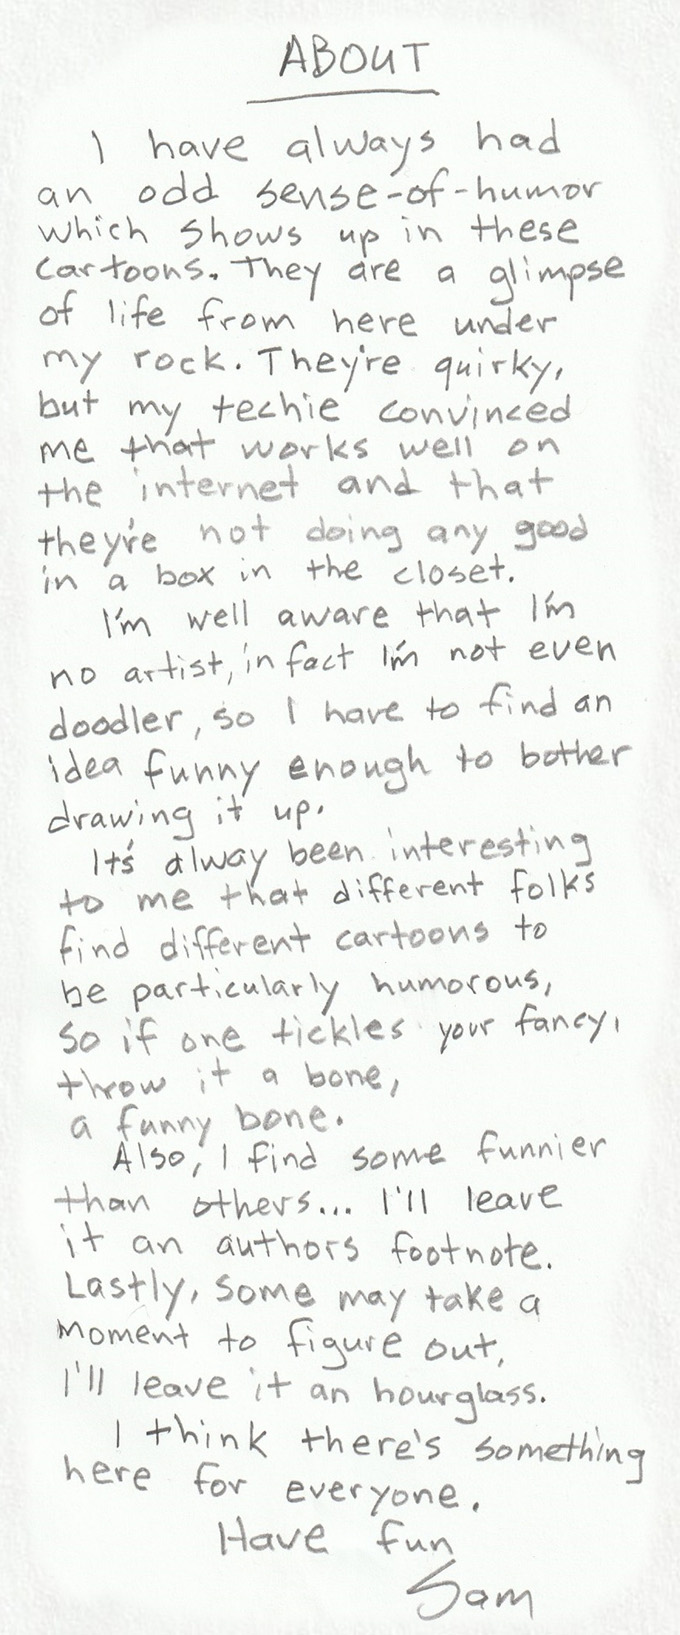 ABOUT
I have always had
an odd sense-of-humor
which shows up in these
cartoons. They are a glimpse
of life from here under
my rock. They're quirky,
but my techie convinced
me that works well on
the internet and that
they're not doing any good
in a box in the closet.
I'm well aware that I'm
no artist, in fact I'm not even
doodler, so I have to find an
idea funny enough to bother
drawing it up.
It's alway been interesting
to me that different folks
find different cartoons to
be particularly humorous,
so if one tickles your fancy,
throw it a bone,
a funny bone.
Also, I find some funnier
than others... I'll leave
it an authors footnote.
Lastly, some may take a
moment to figure out,
I'll leave it an hourglass.
I think there's something
here for everyone.
Have fun
Sam